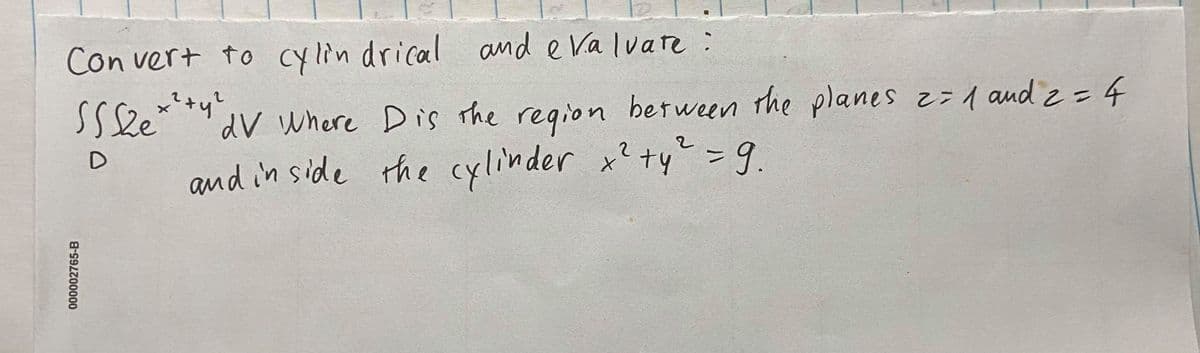 Convert to cylindrical and evaluate :
∫∫∫ze^x²+y² dV where D is the region between the planes z=1 and z=4
D
and inside the cylinder x²+y²=9.
000002765-B